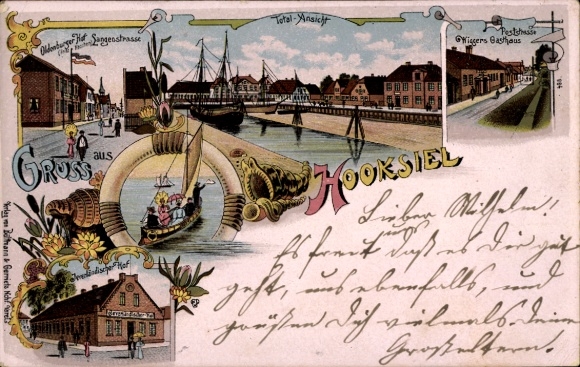 Oldenburger Hof Langenstrasse
Total-Ansicht
Poststrasse
Wiggers Gasthaus
GRUSS aus
HOOKSIEL
Jeverländischer Hof
Lieber Wilhelm!
Es freut uns daß es dir gut
geht, uns ebenfalls, und
grüßen dich vielmals deine
Großeltern.